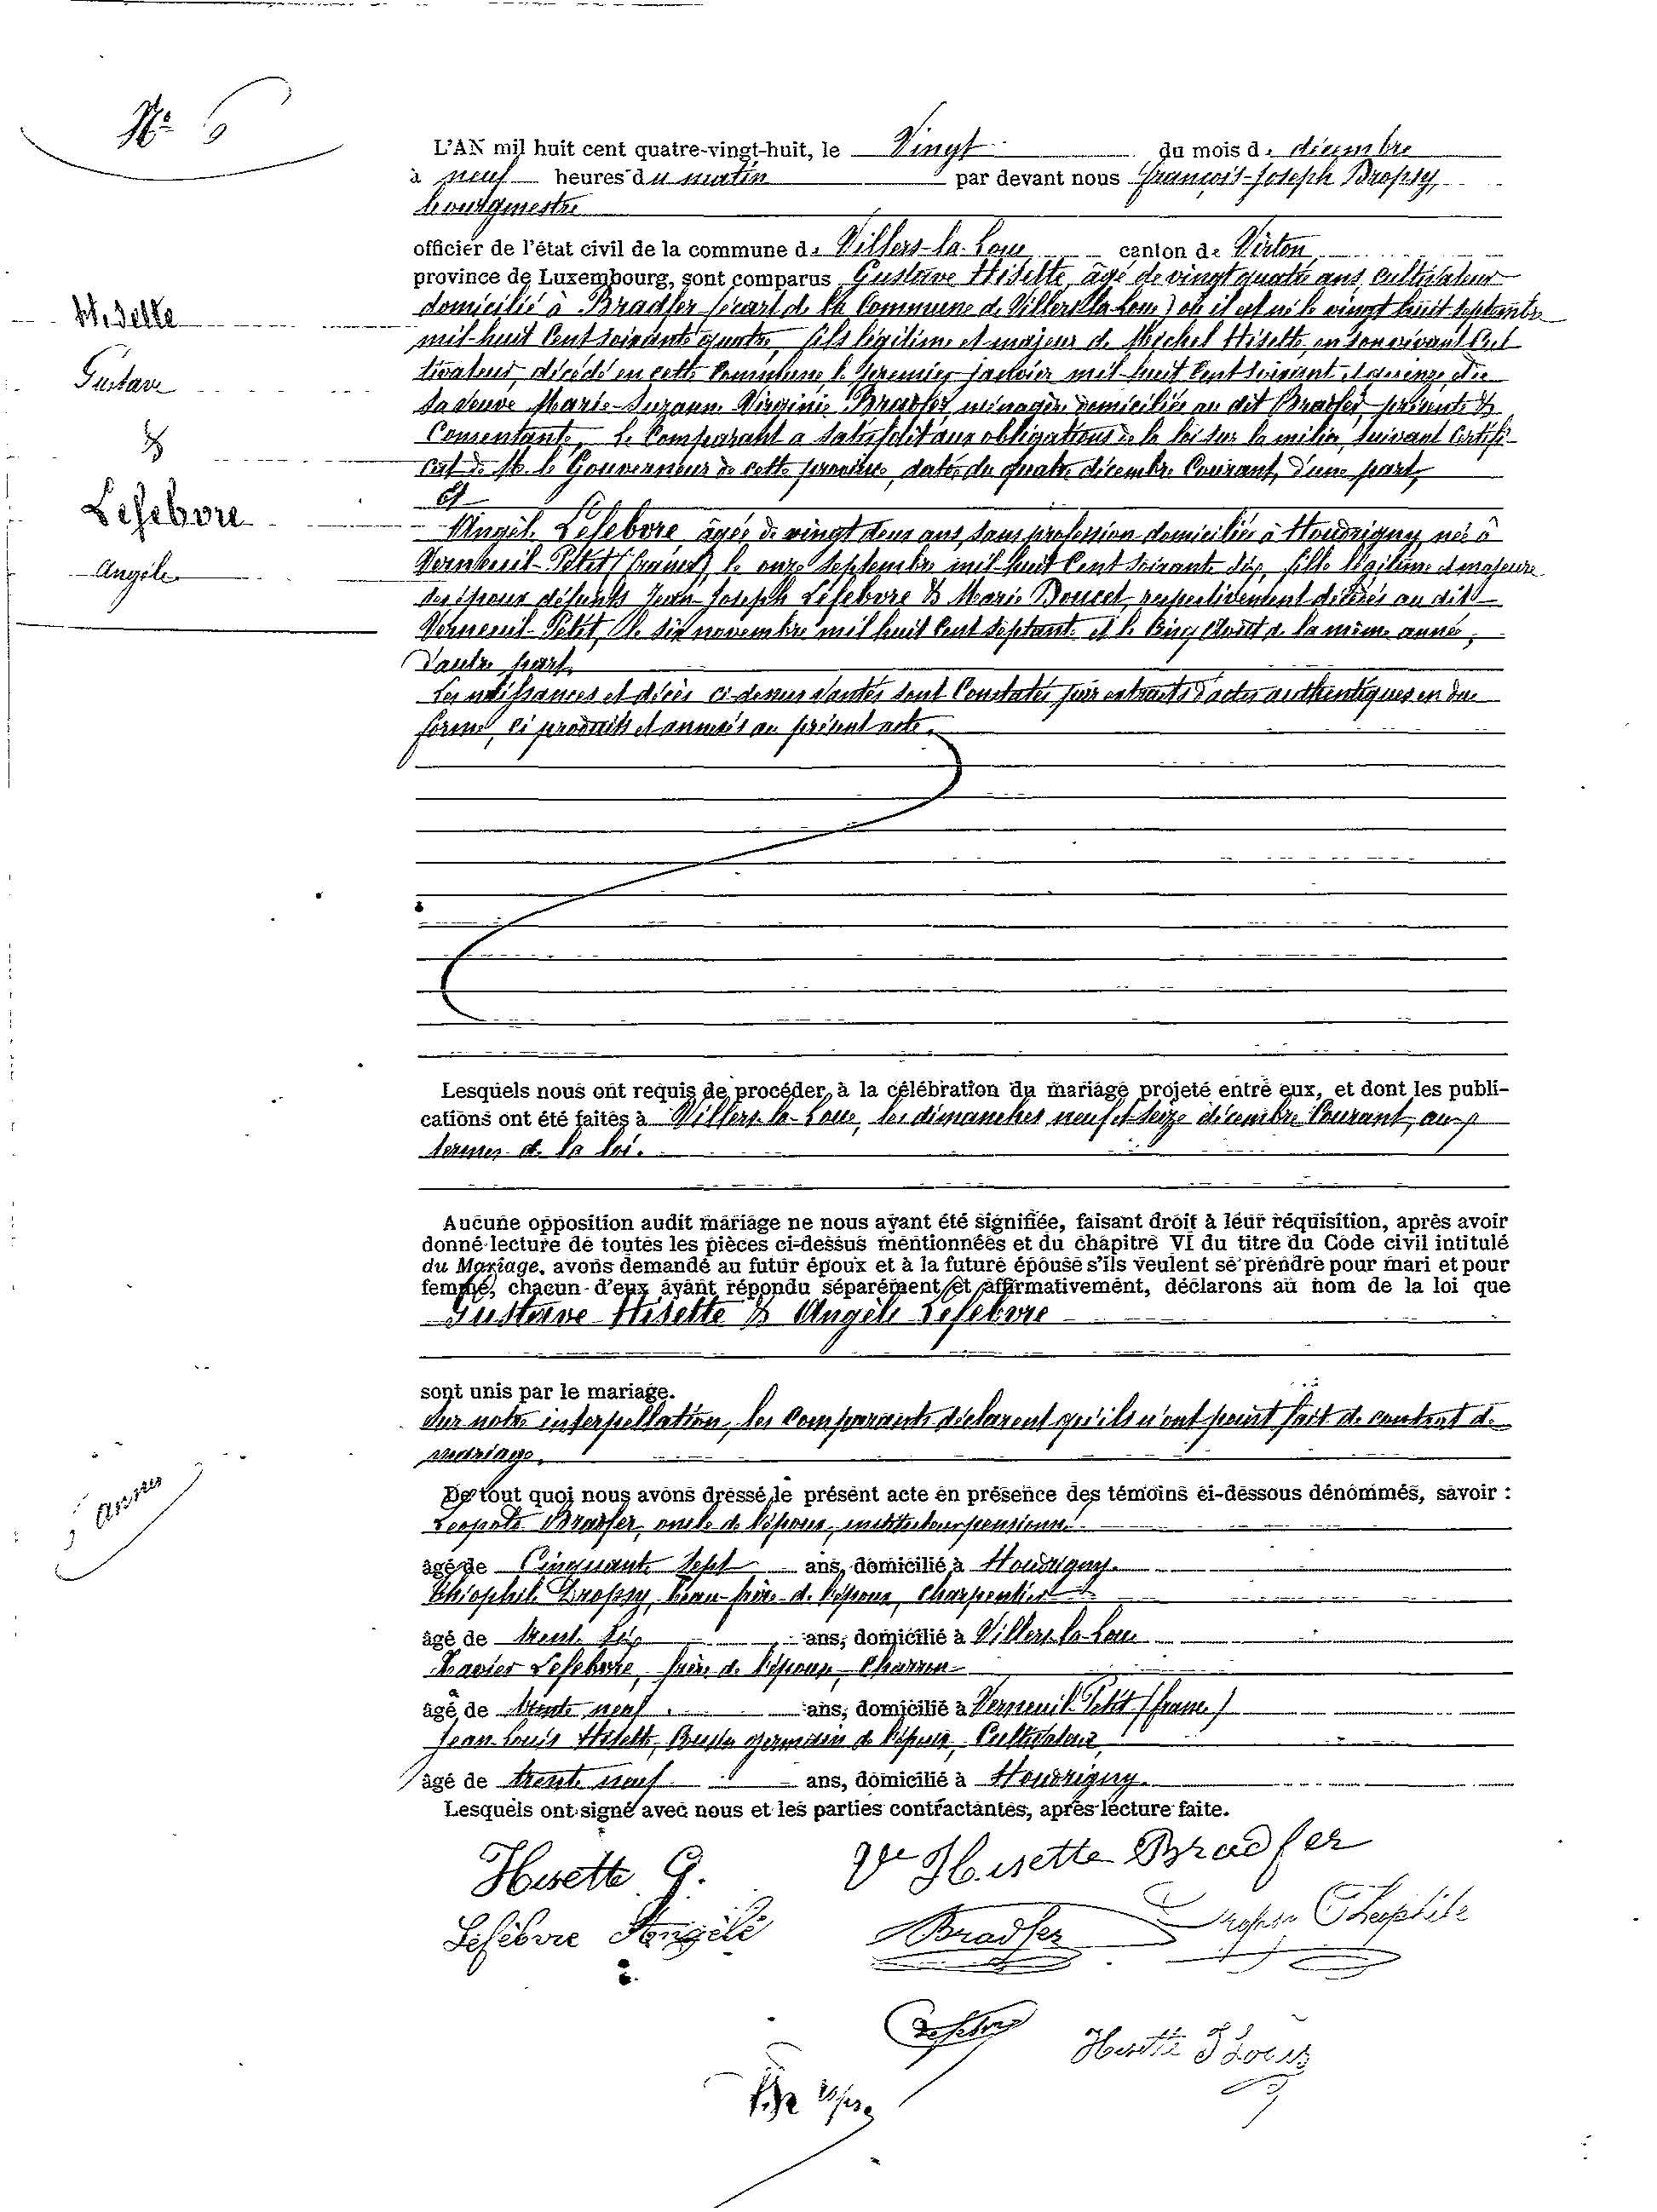 N° 6
L'AN mil huit cent quatre-vingt-huit, le Vingt du mois de décembre
à neuf heures du matin par devant nous François-Joseph Dropsy,
bourgmestre
officier de l'état civil de la commune de Villers-la-Loue canton de Virton,
province de Luxembourg, sont comparus Gustave Hisette, âgé de vingt quatre ans, cultivateur
domicilié à Bradfer (écart de la Commune de Villers-la-Loue) où il est né le vingt huit septembre
mil-huit Cent soixante quatre, fils légitime et majeur de Michel Hisette, en son vivant Cul
tivateur, décédé en cette Commune, le premier janvier mil-huit Cent soixante et quinze, et de
sa veuve Marie-Suzanne Virginie Bradfer, ménagère domiciliée au dit Bradfer, présente &
Consentante, le Comparant a satisfait aux obligations de la loi sur la milice, suivant Certifi-
cat de M. le Gouverneur de cette province, daté du quatre décembre Courant, d'une part,
Et
Angèle Lefebvre âgée de vingt deux ans, sans profession domiciliée à Houdrigny, née à
Verneuil-Petit (France), le onze septembre mil-huit Cent soixante six, fille légitime et majeure
des époux défunts Jean-Joseph Lefebvre & Marie Doucet, respectivement décédés au dit
Verneuil-Petit, le six novembre mil huit Cent septante et le Cinq Août de la même année,
d'autre part.
Les naissances et décès ci-dessus vantés sont Constatés par extraits d'actes authentiques en due
forme, ci produits et annexés au présent acte.
Hisette
Gustave
&
Lefebvre
Angèle
Lesquels nous ont requis de procéder à la célébration du mariage projeté entre eux, et dont les publi-
cations ont été faites à Villers-la-Loue, les dimanches neuf et seize décembre Courant, aux
termes de la loi.
Aucune opposition audit mariage ne nous ayant été signifiée, faisant droit à leur réquisition, après avoir
donné lecture de toutes les pièces ci-dessus mentionnées et du chapitre VI du titre du Code civil intitulé
du Mariage, avons demandé au futur époux et à la future épouse s'ils veulent se prendre pour mari et pour
femme, chacun d'eux ayant répondu séparément et affirmativement, déclarons au nom de la loi que
Gustave Hisette & Angèle Lefebvre
sont unis par le mariage.
Sur notre interpellation, les Comparants déclarent qu'ils n'ont point fait de contrat de
mariage.
De tout quoi nous avons dressé le présent acte en présence des témoins ci-dessous dénommés, savoir :
Léopold Bradfer, oncle de l'époux, instituteur pensionné
âgé de Cinquante sept ans, domicilié à Houdrigny.
Théophile Dropsy, beau-frère de l'époux, Charpentier
âgé de trente six ans, domicilié à Villers-la-Loue
Xavier Lefebvre, frère de l'épouse, Charron
âgé de trente neuf ans, domicilié à Verneuil-Petit (france)
Jean-Louis Hisette, Cousin germain de l'époux, Cultivateur,
âgé de trente neuf ans, domicilié à Houdrigny.
Lesquels ont signé avec nous et les parties contractantes, après lecture faite.
Hisette G. Vve Hisette Bradfer
Lefèbvre Angèle Bradfer Dropsy Théophile
Lefebvre Hisette J Louis